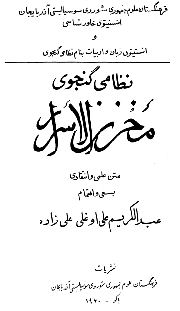 فرهنگستان علوم جمهوری شوروی سوسیالیستی آذربایجان
انستیتوی خاورشناسی
و
انستیتوی زبان و ادبیات بنام نظامی گنجوی
نظامی گنجوی
مخزن الاسرار
متن علمی و انتقادی
بسعی و اهتمام
عبدالکریم علی اوغلی علی زاده
نشریات
فرهنگستان علوم جمهوری شوروی سوسیالیستی آذربایجان
باکو - ۱۹۶۰